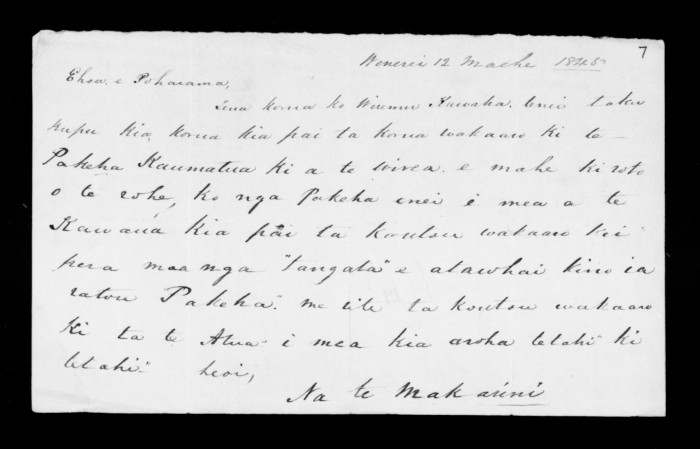 7
Wenerei 12 Maehe 1845
Ehoa e Poharama,
Tena korua ko Wiremu Kawaha. Tenei taku
kupu kia korua kia pai ta korua wakaaro ki te
Pakeha Kaumatua ki a te wirea. e mahe ki roto
o te rohe, ko nga Pakeha enei i mea a te
Kawana kia pai ta koutou wakaaro kei
pera me nga "tangata" e atawhai kino ia
ratou Pakeha". me rite ta koutou wakaaro
ki ta te Atua i mea kia aroha tetahi" ki
tetahi". heoi,
Na te Makarini